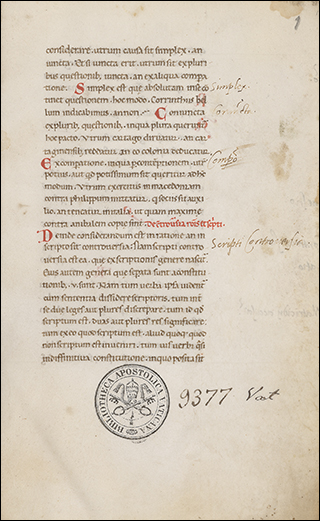 considerare. utrum causa sit simplex. an
iuncta. Et si iuncta erit. utrum sit ex pluri
bus questionib; iuncta. an ex aliqua compa
ratione. Simplex est que absolutam in se co
tinet questionem. hoc modo. Corinthiis bel
lum indicabimus. an non. Coniuncta
ex plurib; questionib; in qua plura querunt
hoc pacto. Utrum cartago diruatur. an car
taginensib; reddatur. an eo colonia deducatur.
Ex comparatione. in qua per contentionem. utr
potius. aut quid potissimum sit queritur. ad hc
modum. Utrum exercitus in macedoniam
contra philippum mittatur. q sociis sit auxi
lio. an teneatur in italia. ut quam maxime
contra anibalem copie sint.
Deinde considerandum est in ratione. an in
scripto sit controversia. Nam scripti contro
versia est ea. que ex scriptionis genere nascit.
Eius autem genera que separata sunt a constituti
onib; v. sunt. Nam tum verba ipsa videnť
cum sententia dissidere scriptoris. tum int
se due leges aut plures discrepare. tum id qd
scriptum est. duas aut plures res significare.
tum ex eo quod scriptum est. aliud quoq; quod
non scriptum est inveniri. tum vis verbi qsi
in diffinitiva constitutione. in quo posita sit
Simplex.
Scripti Controversia
1
BIBLIOTHECA APOSTOLICA VATICANA
9377 Vat